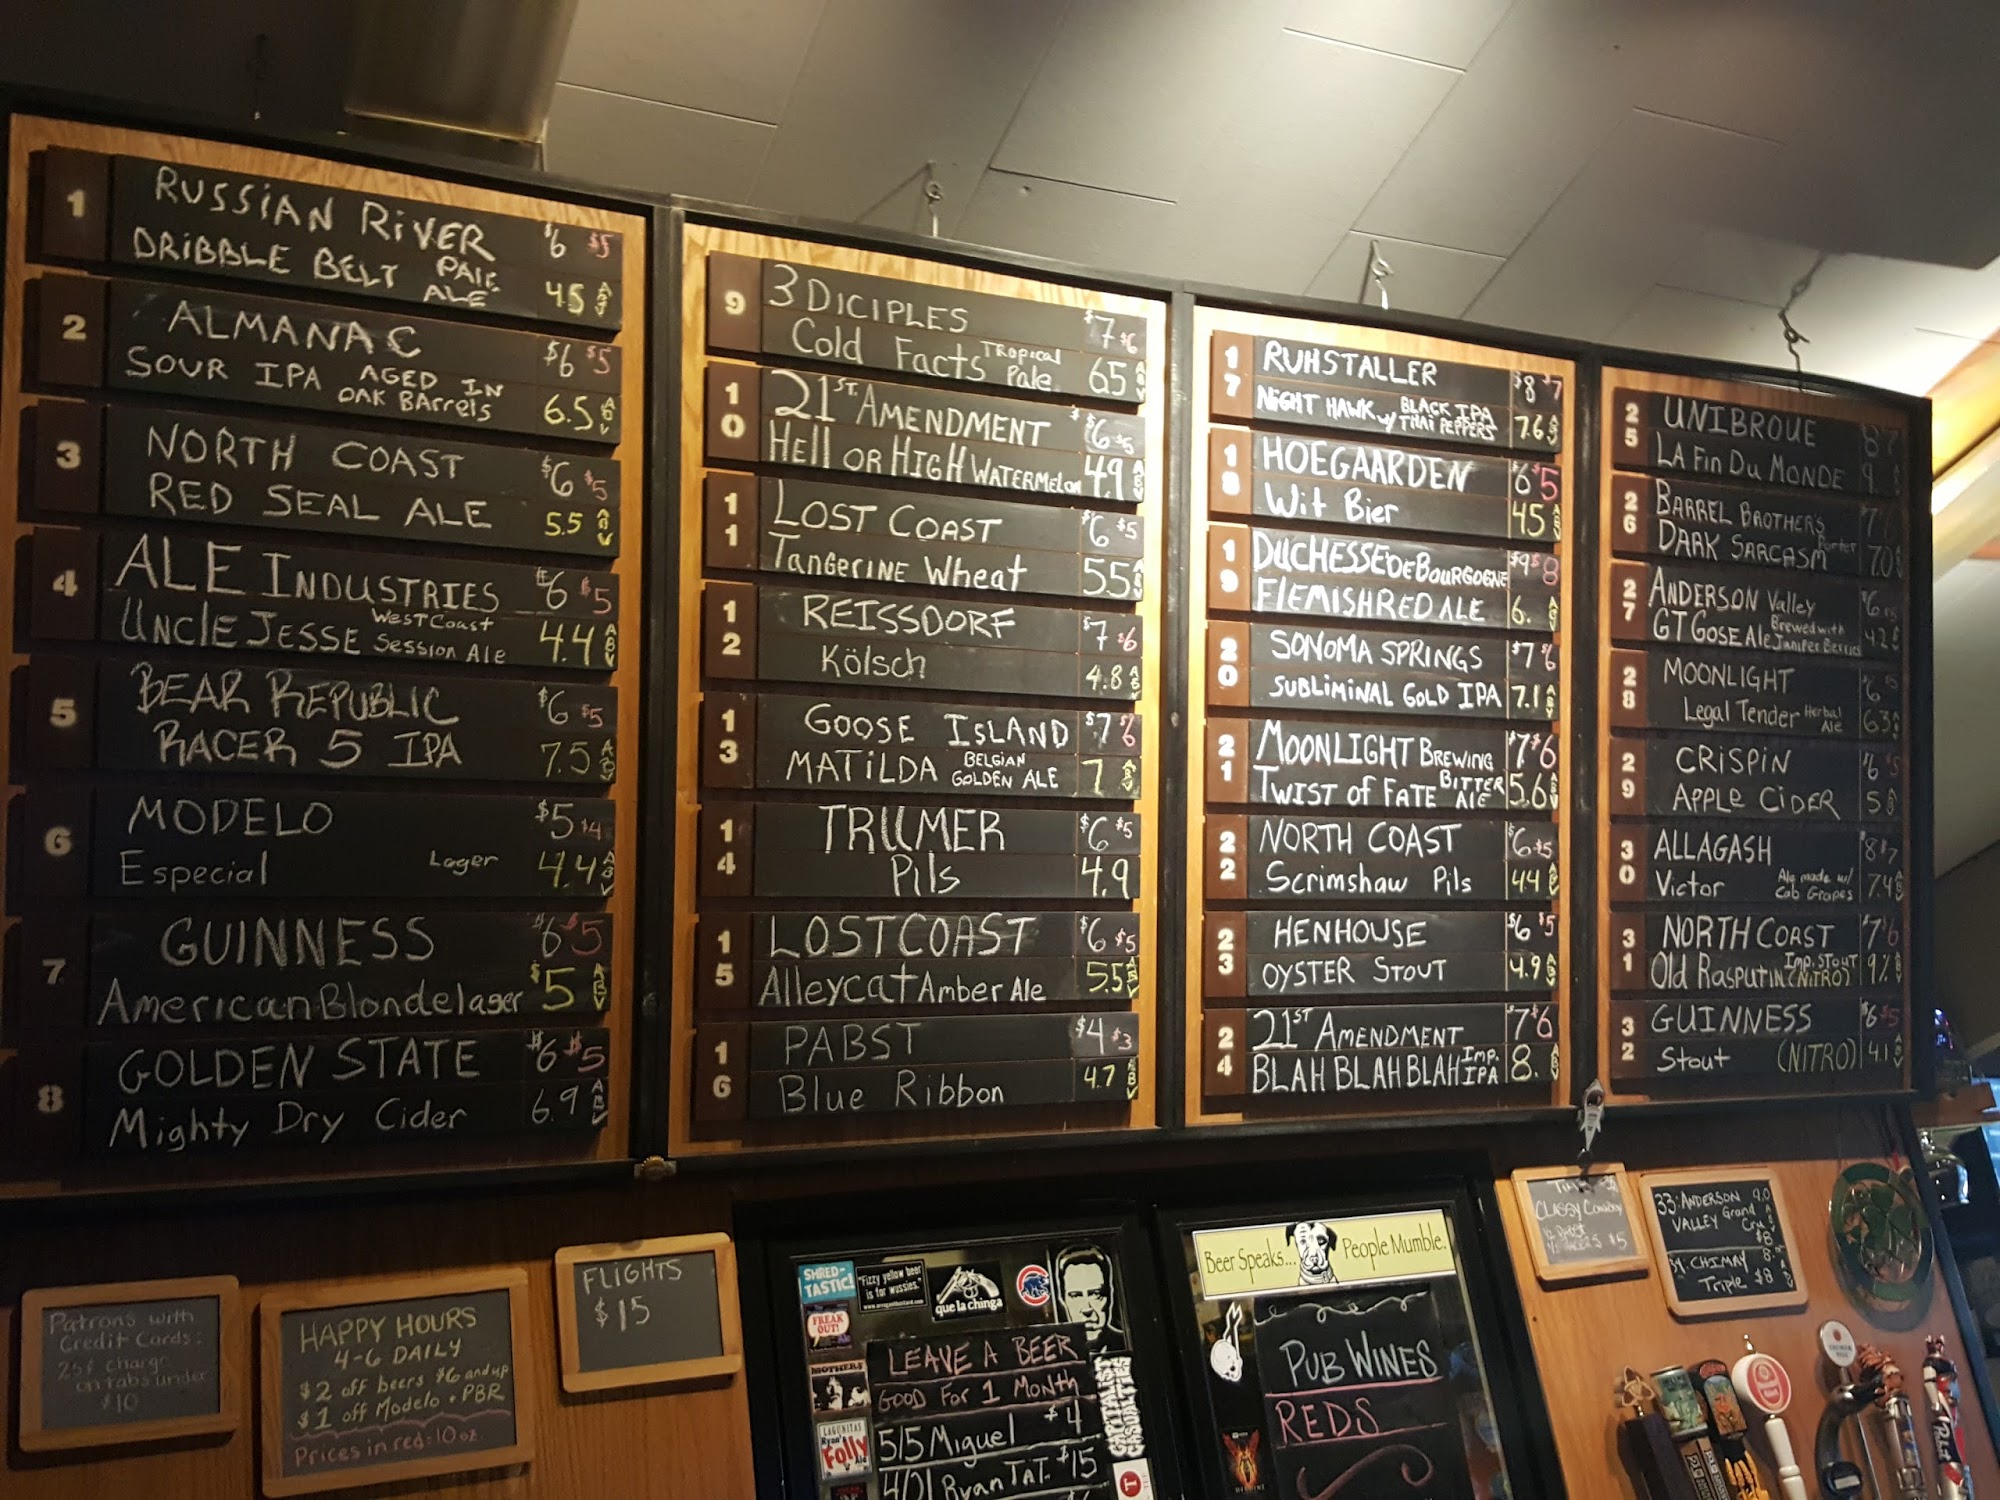 1
RUSSIAN RIVER $6 $5
DRIBBLE BELT PALE ALE 4.5 ABV
2
ALMANAC $6 $5
SOUR IPA AGED IN OAK BARRELS 6.5 ABV
3
NORTH COAST $6 $5
RED SEAL ALE 5.5 ABV
4
ALE INDUSTRIES $6 $5
UNCLE JESSE WEST COAST Session Ale 4.4 ABV
5
BEAR REPUBLIC $6 $5
RACER 5 IPA 7.5 ABV
6
MODELO $5 $4
Especial Lager 4.4 ABV
7
GUINNESS $6 $5
American Blonde lager $5 ABV
8
GOLDEN STATE $6 $5
Mighty Dry Cider 6.9 ABV
9
3 DICIPLES $7 $6
Cold Facts Tropical Pale 65 ABV
10
21ST AMENDMENT $6 $5
HELL OR HIGH WATERMELON 4.9 ABV
11
LOST COAST $6 $5
TANGERINE Wheat 5.5 ABV
12
REISSDORF $7 $6
Kölsch 4.8 ABV
13
GOOSE ISLAND $7 $6
MATILDA BELGIAN GOLDEN ALE 7 ABV
14
TRUMER $6 $5
Pils 4.9
15
LOST COAST $6 $5
Alleycat Amber Ale 5.5 ABV
16
PABST $4 $3
Blue Ribbon 4.7 ABV
17
RUHSTALLER $8 $7
NIGHT HAWK w/ BLACK IPA THAI PEPPERS 7.6 ABV
18
HOEGAARDEN $6 $5
Wit Bier 45 ABV
19
DUCHESSE DE BOURGOGNE $9 $8
FLEMISH RED ALE 6. ABV
20
SONOMA SPRINGS $7 $6
SUBLIMINAL GOLD IPA 7.1 ABV
21
MOONLIGHT BREWING $7 $6
TWIST OF FATE BITTER ALE 5.6 ABV
22
NORTH COAST $6 $5
Scrimshaw Pils 44 ABV
23
HENHOUSE $6 $5
OYSTER STOUT 4.9 ABV
24
21ST AMENDMENT $7 $6
BLAH BLAH BLAH Imp. IPA 8. ABV
25
UNIBROUE 8 7
LA Fin Du MONDE 9
26
BARREL BROTHER'S $7
DARK SARCASM Porter 7.0
27
ANDERSON Valley $6
GT GOSE Ale Brewed with Juniper Berries 4.2
28
MOONLIGHT $6 $5
Legal Tender Herbal Ale 6.3 ABV
29
CRISPIN $6 $5
APPLE CIDER 5 ABV
30
ALLAGASH 8 7
Victor Ale made w/ Cab Grapes 7.4 ABV
31
NORTH COAST $7 6
Old Rasputin Imp. STOUT (NITRO) 9% ABV
32
GUINNESS $6 $5
Stout (NITRO) 4.1 ABV
Patrons with
Credit Cards:
25¢ charge
on tabs under
$10
HAPPY HOURS
4-6 DAILY
$2 off beers $6 and up
$1 off Modelo + PBR
Prices in red: 10 oz.
FLIGHTS
$15
SHRED-
TASTIC!
"Fizzy yellow beer
is for wussies."
que la chinga
FREAK
OUT!
MOTHERS
LAGUNITAS
Ryan's
Folly
LEAVE A BEER
GOOD FOR 1 MONTH
5/5 Miguel $4
4/01 Ryan TAT. $15
CAPITALIST
CASUALTIES
Beer Speaks... People Mumble.
PUB WINES
REDS
CLASSY Cowboy
$5
33. ANDERSON 9.0
VALLEY Grand Cru ABV
$8
34. CHIMAY 8.
Triple $8